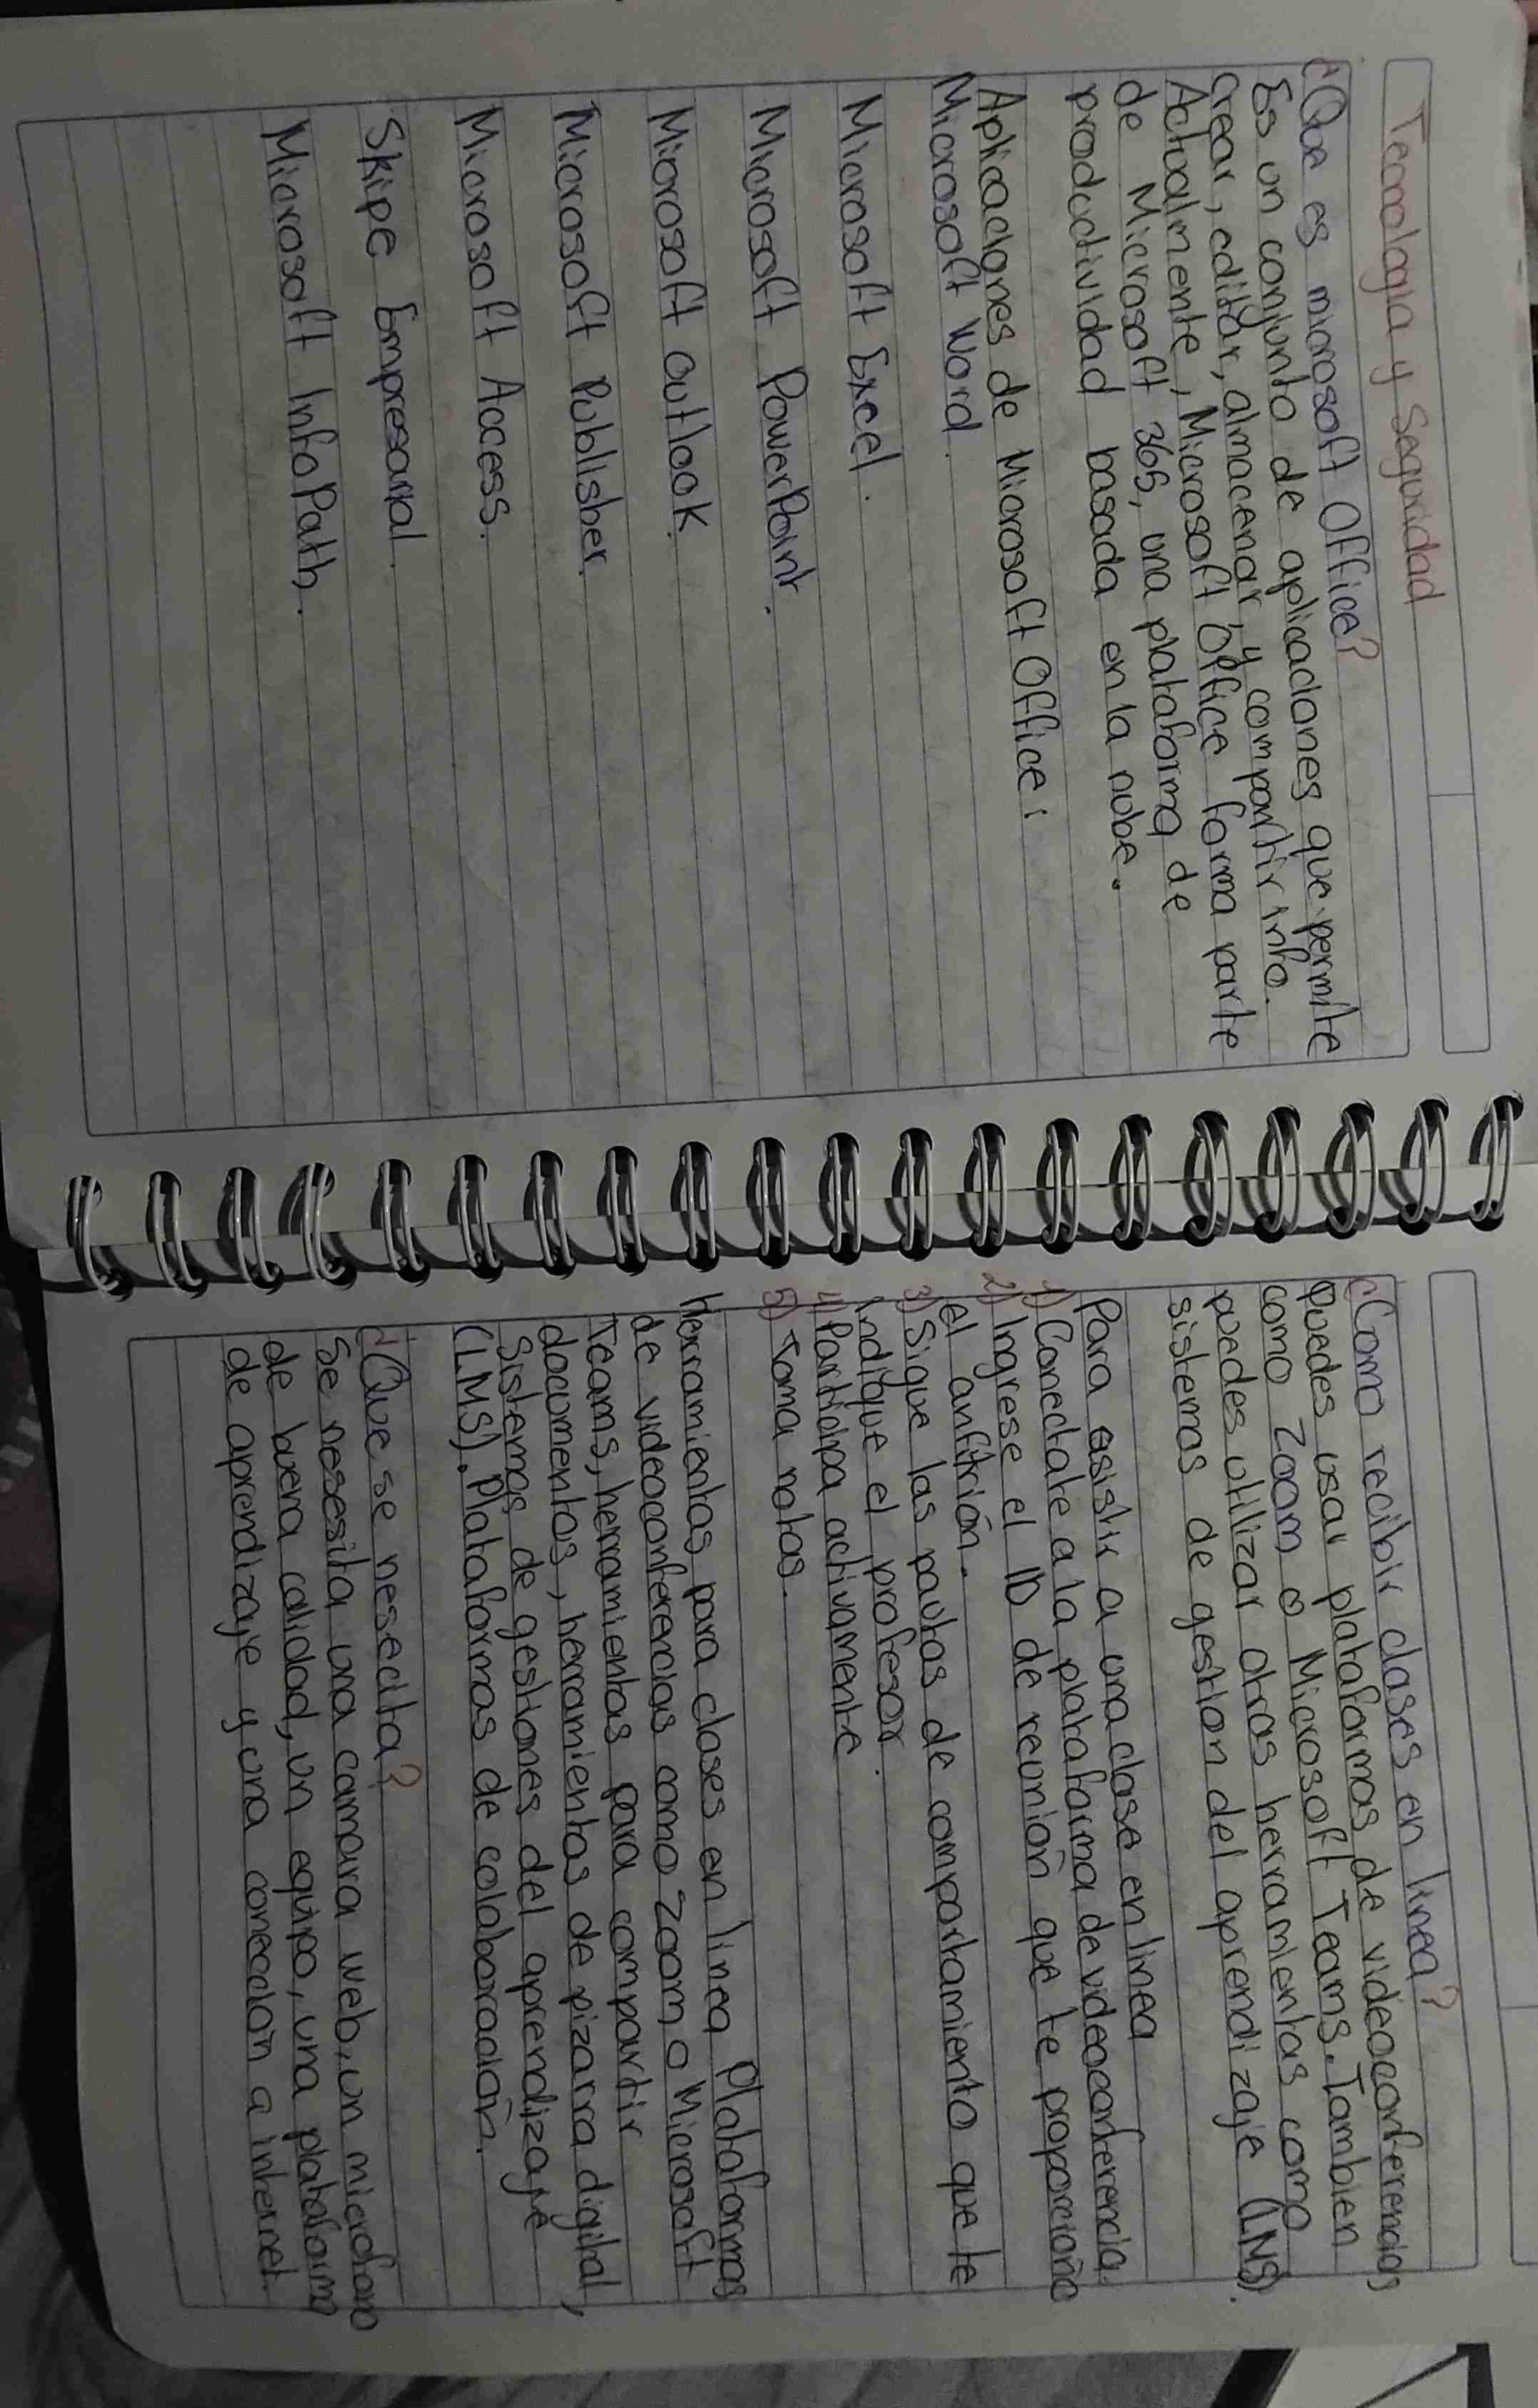 Tecnologia y Seguridad
¿Que es microsoft Office?
Es un conjunto de aplicaciones que permite
crear, editar, almacenar, y compartir info.
Actualmente, Microsoft Office forma parte
de Microsoft 365, una plataforma de
productividad basada en la nube.
Aplicaciones de Microsoft Office:
Microsoft Word.
Microsoft Excel.
Microsoft PowerPoint.
Microsoft Outlook.
Microsoft Publisher.
Microsoft Access.
Skipe Empresarial.
Microsoft InfoPath.
¿Como recibir clases en linea?
Puedes usar plataformas de videoconferencias
como Zoom o Microsoft Teams. Tambien
puedes utilizar otras herramientas como
sistemas de gestion del aprendizaje (LNS).
Para asistir a una clase en linea
1) Conectate a la plataforma de videoconferencia.
2) Ingrese el ID de reunión que te proporcione
el anfitrión.
3) Sigue las pautas de comportamiento que te
indique el profesor.
4) Participa activamente
5) Toma notas.
herramientas para clases en linea plataformas
de videoconferencias como zoom o Microsoft
Teams, herramientas para compartir
documentos, herramientas de pizarra digital,
Sistemas de gestiones del aprendizaje
(LMS). Plataformas de colaboración.
¿Que se nesecita?
Se nesesita una camara web, un microfono
de buena calidad, un equipo, una plataforma
de aprendizaje y una conección a internet.